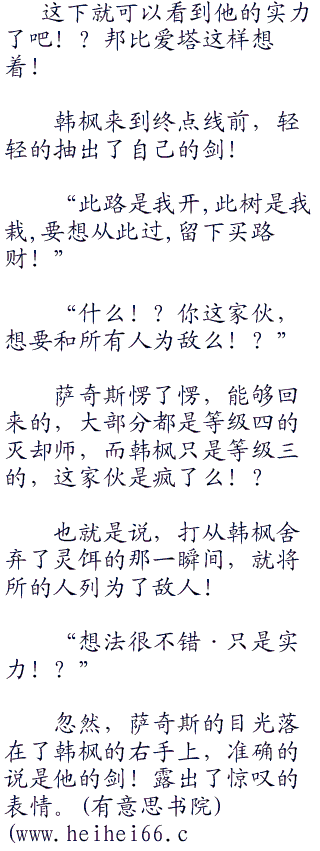 这下就可以看到他的实力
了吧！？邦比爱塔这样想
着！
韩枫来到终点线前，轻
轻的抽出了自己的剑！
“此路是我开,此树是我
栽,要想从此过,留下买路
财！”
“什么！？你这家伙，
想要和所有人为敌么！？”
萨奇斯愣了愣，能够回
来的，大部分都是等级四的
灭却师，而韩枫只是等级三
的，这家伙是疯了么！？
也就是说，打从韩枫舍
弃了灵饵的那一瞬间，就将
所的人列为了敌人！
“想法很不错·只是实
力！？”
忽然，萨奇斯的目光落
在了韩枫的右手上，准确的
说是他的剑！露出了惊叹的
表情。(有意思书院)
(www.heihei66.c